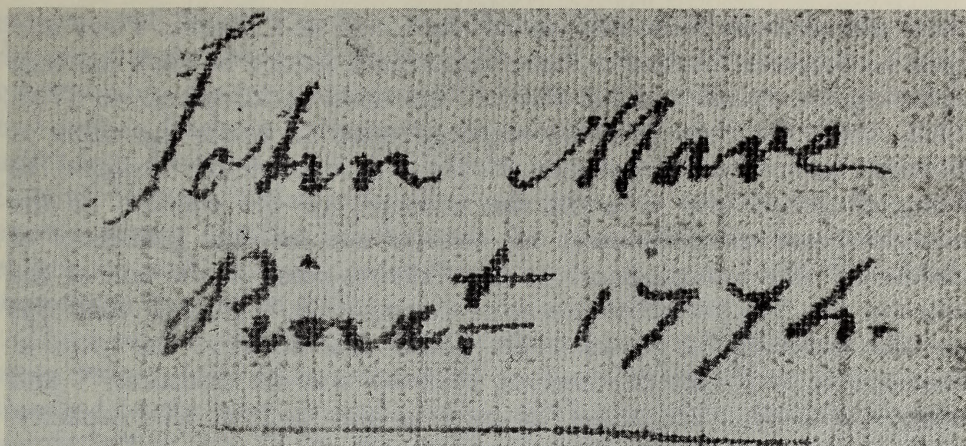 John Mare
Pinxt. 1774.